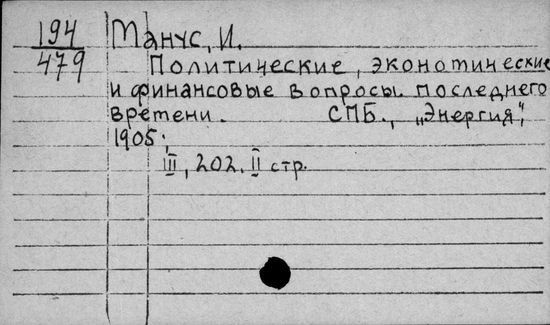 194
479
Манус, И.
Политические, экономические
и финансовые вопросы последнего
времени. СПБ., „Энергия",
1905;
III, 202. II стр.